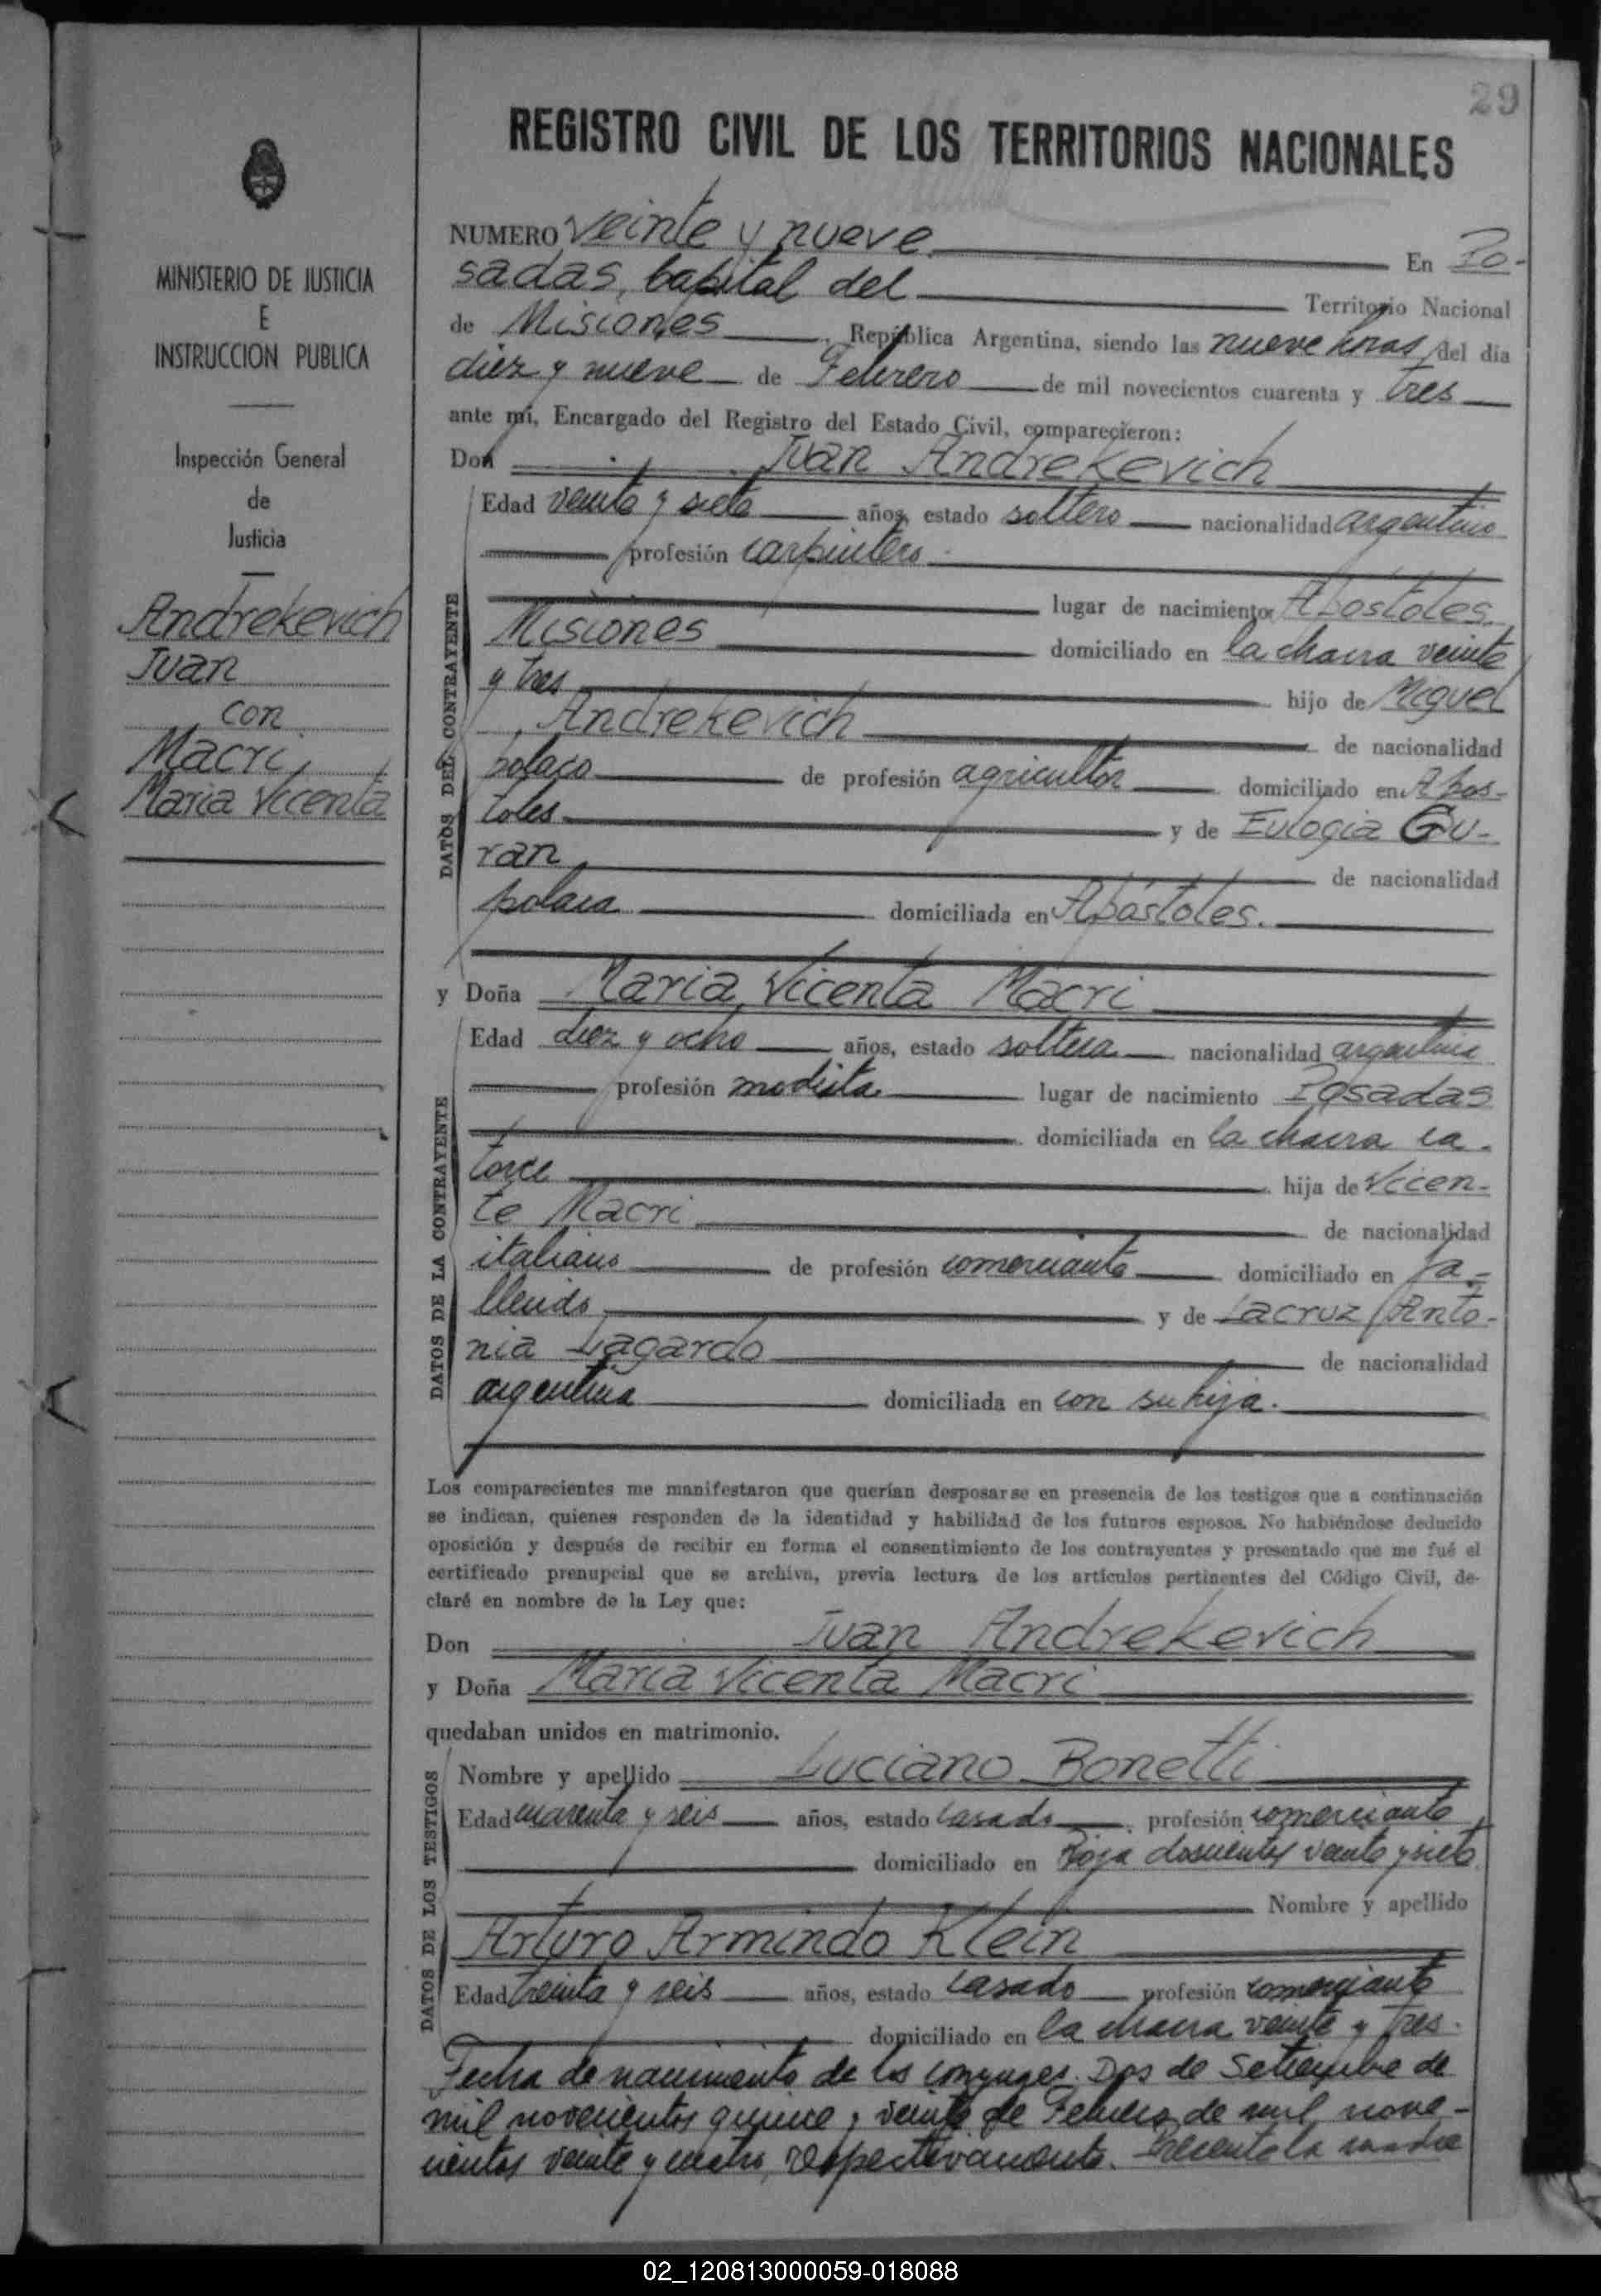 29
REGISTRO CIVIL DE LOS TERRITORIOS NACIONALES
MINISTERIO DE JUSTICIA
E
INSTRUCCION PUBLICA
Inspección General
de
Justicia
Andrekevich
Juan
con
Macri,
Maria Vicenta
NUMERO veinte y nueve En Po-
sadas, Capital del Territorio Nacional
de Misiones, República Argentina, siendo las nueve horas del día
diez y nueve de Febrero de mil novecientos cuarenta y tres
ante mí, Encargado del Registro del Estado Civil, comparecieron:
Don Juan Andrekevich
DATOS DEL CONTRAYENTE
Edad veinte y siete años, estado soltero nacionalidad argentino
profesión carpintero
lugar de nacimiento Apóstoles
Misiones domiciliado en la chacra veinte
y tres hijo de Miguel
Andrekevich de nacionalidad
polaco de profesión agricultor domiciliado en Apos-
toles y de Eulogia Gu-
ran de nacionalidad
polaca domiciliada en Apóstoles.
y Doña Maria Vicenta Macri
DATOS DE LA CONTRAYENTE
Edad diez y ocho años, estado soltera nacionalidad argentina
profesión modista lugar de nacimiento Posadas
domiciliada en la chacra ca-
torce hija de Vicen-
te Macri de nacionalidad
italiano de profesión comerciante domiciliado en fa-
llecido y de Lacruz Anto-
nia Lagardo de nacionalidad
argentina domiciliada en con su hija.
Los comparecientes me manifestaron que querían desposarse en presencia de los testigos que a continuación
se indican, quienes responden de la identidad y habilidad de los futuros esposos. No habiéndose deducido
oposición y después de recibir en forma el consentimiento de los contrayentes y presentado que me fué el
certificado prenupcial que se archiva, previa lectura de los artículos pertinentes del Código Civil, de-
claré en nombre de la Ley que:
Don Juan Andrekevich
y Doña Maria Vicenta Macri
quedaban unidos en matrimonio.
DATOS DE LOS TESTIGOS
Nombre y apellido Luciano Bonetti
Edad cuarenta y seis años, estado casado, profesión comerciante
domiciliado en Rioja doscientos veinte y siete
Nombre y apellido
Arturo Armindo Klein
Edad treinta y seis años, estado casado profesión comerciante
domiciliado en la chacra veinte y tres.
Fecha de nacimiento de los conyuges. Dos de Setiembre de
mil novecientos quince y veinte de Febrero de mil nove-
cientos veinte y cuatro, respectivamente. Presente la madre
02_120813000059-018088